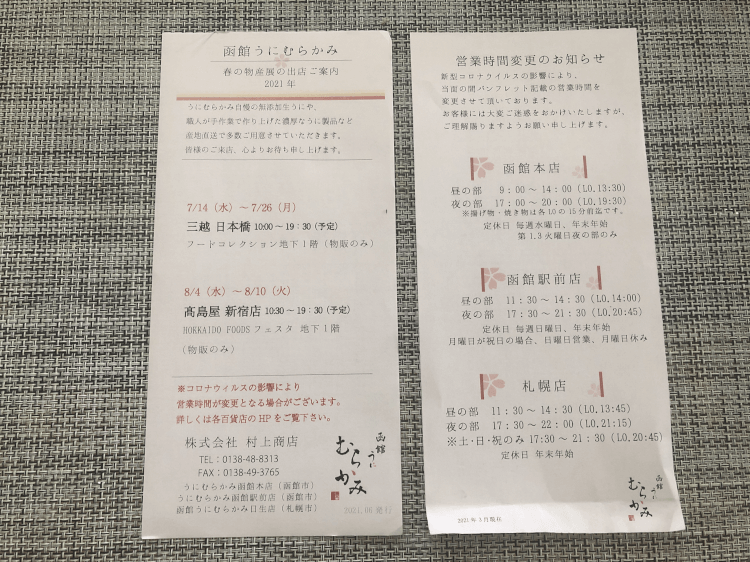 函館うにむらかみ
春の物産展の出店ご案内
2021年
うにむらかみ自慢の無添加生うにや、
職人が手作業で作り上げた濃厚なうに製品など
産地直送で多数ご用意させていただきます。
皆様のご来店、心よりお待ち申し上げます。
7/14（水）～7/26（月）
三越 日本橋 10:00～19:30(予定)
フードコレクション地下1階（物販のみ）
8/4（水）～8/10（火）
髙島屋 新宿店 10:30～19:30(予定)
HOKKAIDO FOODSフェスタ 地下1階
（物販のみ）
※コロナウイルスの影響により
営業時間が変更となる場合がございます。
詳しくは各百貨店のHPをご覧下さい。
株式会社 村上商店
TEL：0138-48-8313
FAX：0138-49-3765
うにむらかみ函館本店（函館市）
うにむらかみ函館駅前店（函館市）
函館うにむらかみ日生店（札幌市）
函館
うに
むらかみ
2021.06発行
営業時間変更のお知らせ
新型コロナウイルスの影響により、
当面の間パンフレット記載の営業時間を
変更させて頂いております。
お客様には大変ご迷惑をおかけいたしますが、
ご理解賜りますようお願い申し上げます。
函館本店
昼の部 9:00～14:00(LO.13:30)
夜の部 17:00～20:00(LO.19:30)
※揚げ物・焼き物は各LOの15分前迄です。
定休日 毎週水曜日、年末年始
第1.3火曜日夜の部のみ
函館駅前店
昼の部 11:30～14:30(LO.14:00)
夜の部 17:30～21:30(LO.20:45)
定休日 毎週日曜日、年末年始
月曜日が祝日の場合、日曜日営業、月曜日休み
札幌店
昼の部 11:30～14:30(LO.13:45)
夜の部 17:30～22:00(LO.21:15)
※土・日・祝のみ 17:30～21:30(LO.20:45)
定休日 年末年始
函館
うに
むらかみ
2021年3月現在